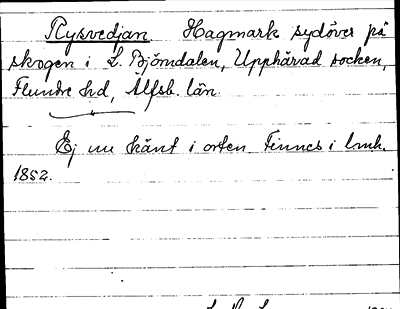 Rysvedjan Hagmark sydöver på
skogen i L. Björndalen, Upphärad socken,
Flundre hd, Älfsb. län
Ej nu känt i orten. Finnes i lmh.
1852.